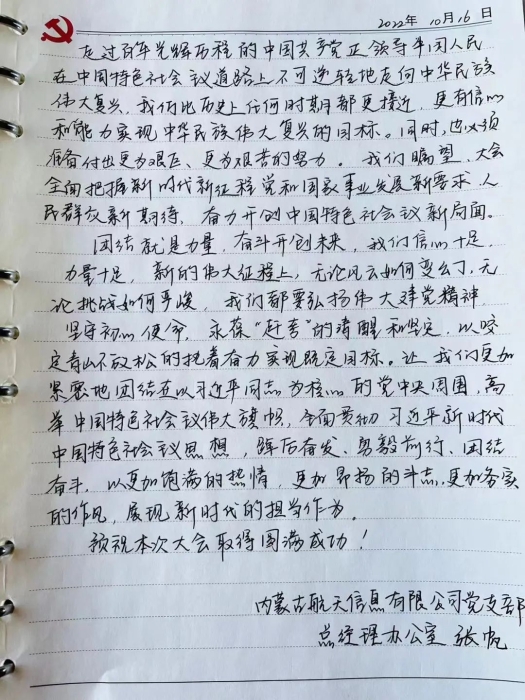 2022年 10月16日
走过百年光辉历程的中国共产党正领导中国人民
在中国特色社会主义道路上不可逆转地走向中华民族
伟大复兴，我们比历史上任何时期都更接近、更有信心
和能力实现中华民族伟大复兴的目标。同时，也必须
准备付出更为艰巨、更为艰苦的努力。我们瞩望，大会
全面把握新时代新征程党和国家事业发展新要求、人
民群众新期待，奋力开创中国特色社会主义新局面。
团结就是力量，奋斗开创未来，我们信心十足，
力量十足，新的伟大征程上，无论风云如何变幻，无
论挑战如何严峻，我们都要弘扬伟大建党精神
坚守初心使命，永葆“赶考”的清醒和坚定，以咬
定青山不放松的执着奋力实现既定目标。让我们更加
紧密地团结在以习近平同志为核心的党中央周围，高
举中国特色社会主义伟大旗帜，全面贯彻习近平新时代
中国特色社会主义思想，踔厉奋发、勇毅前行、团结
奋斗，以更加饱满的热情，更加昂扬的斗志，更加务实
的作风，展现新时代的担当作为。
预祝本次大会取得圆满成功！
内蒙古航天信息有限公司党支部
总经理办公室 张帆